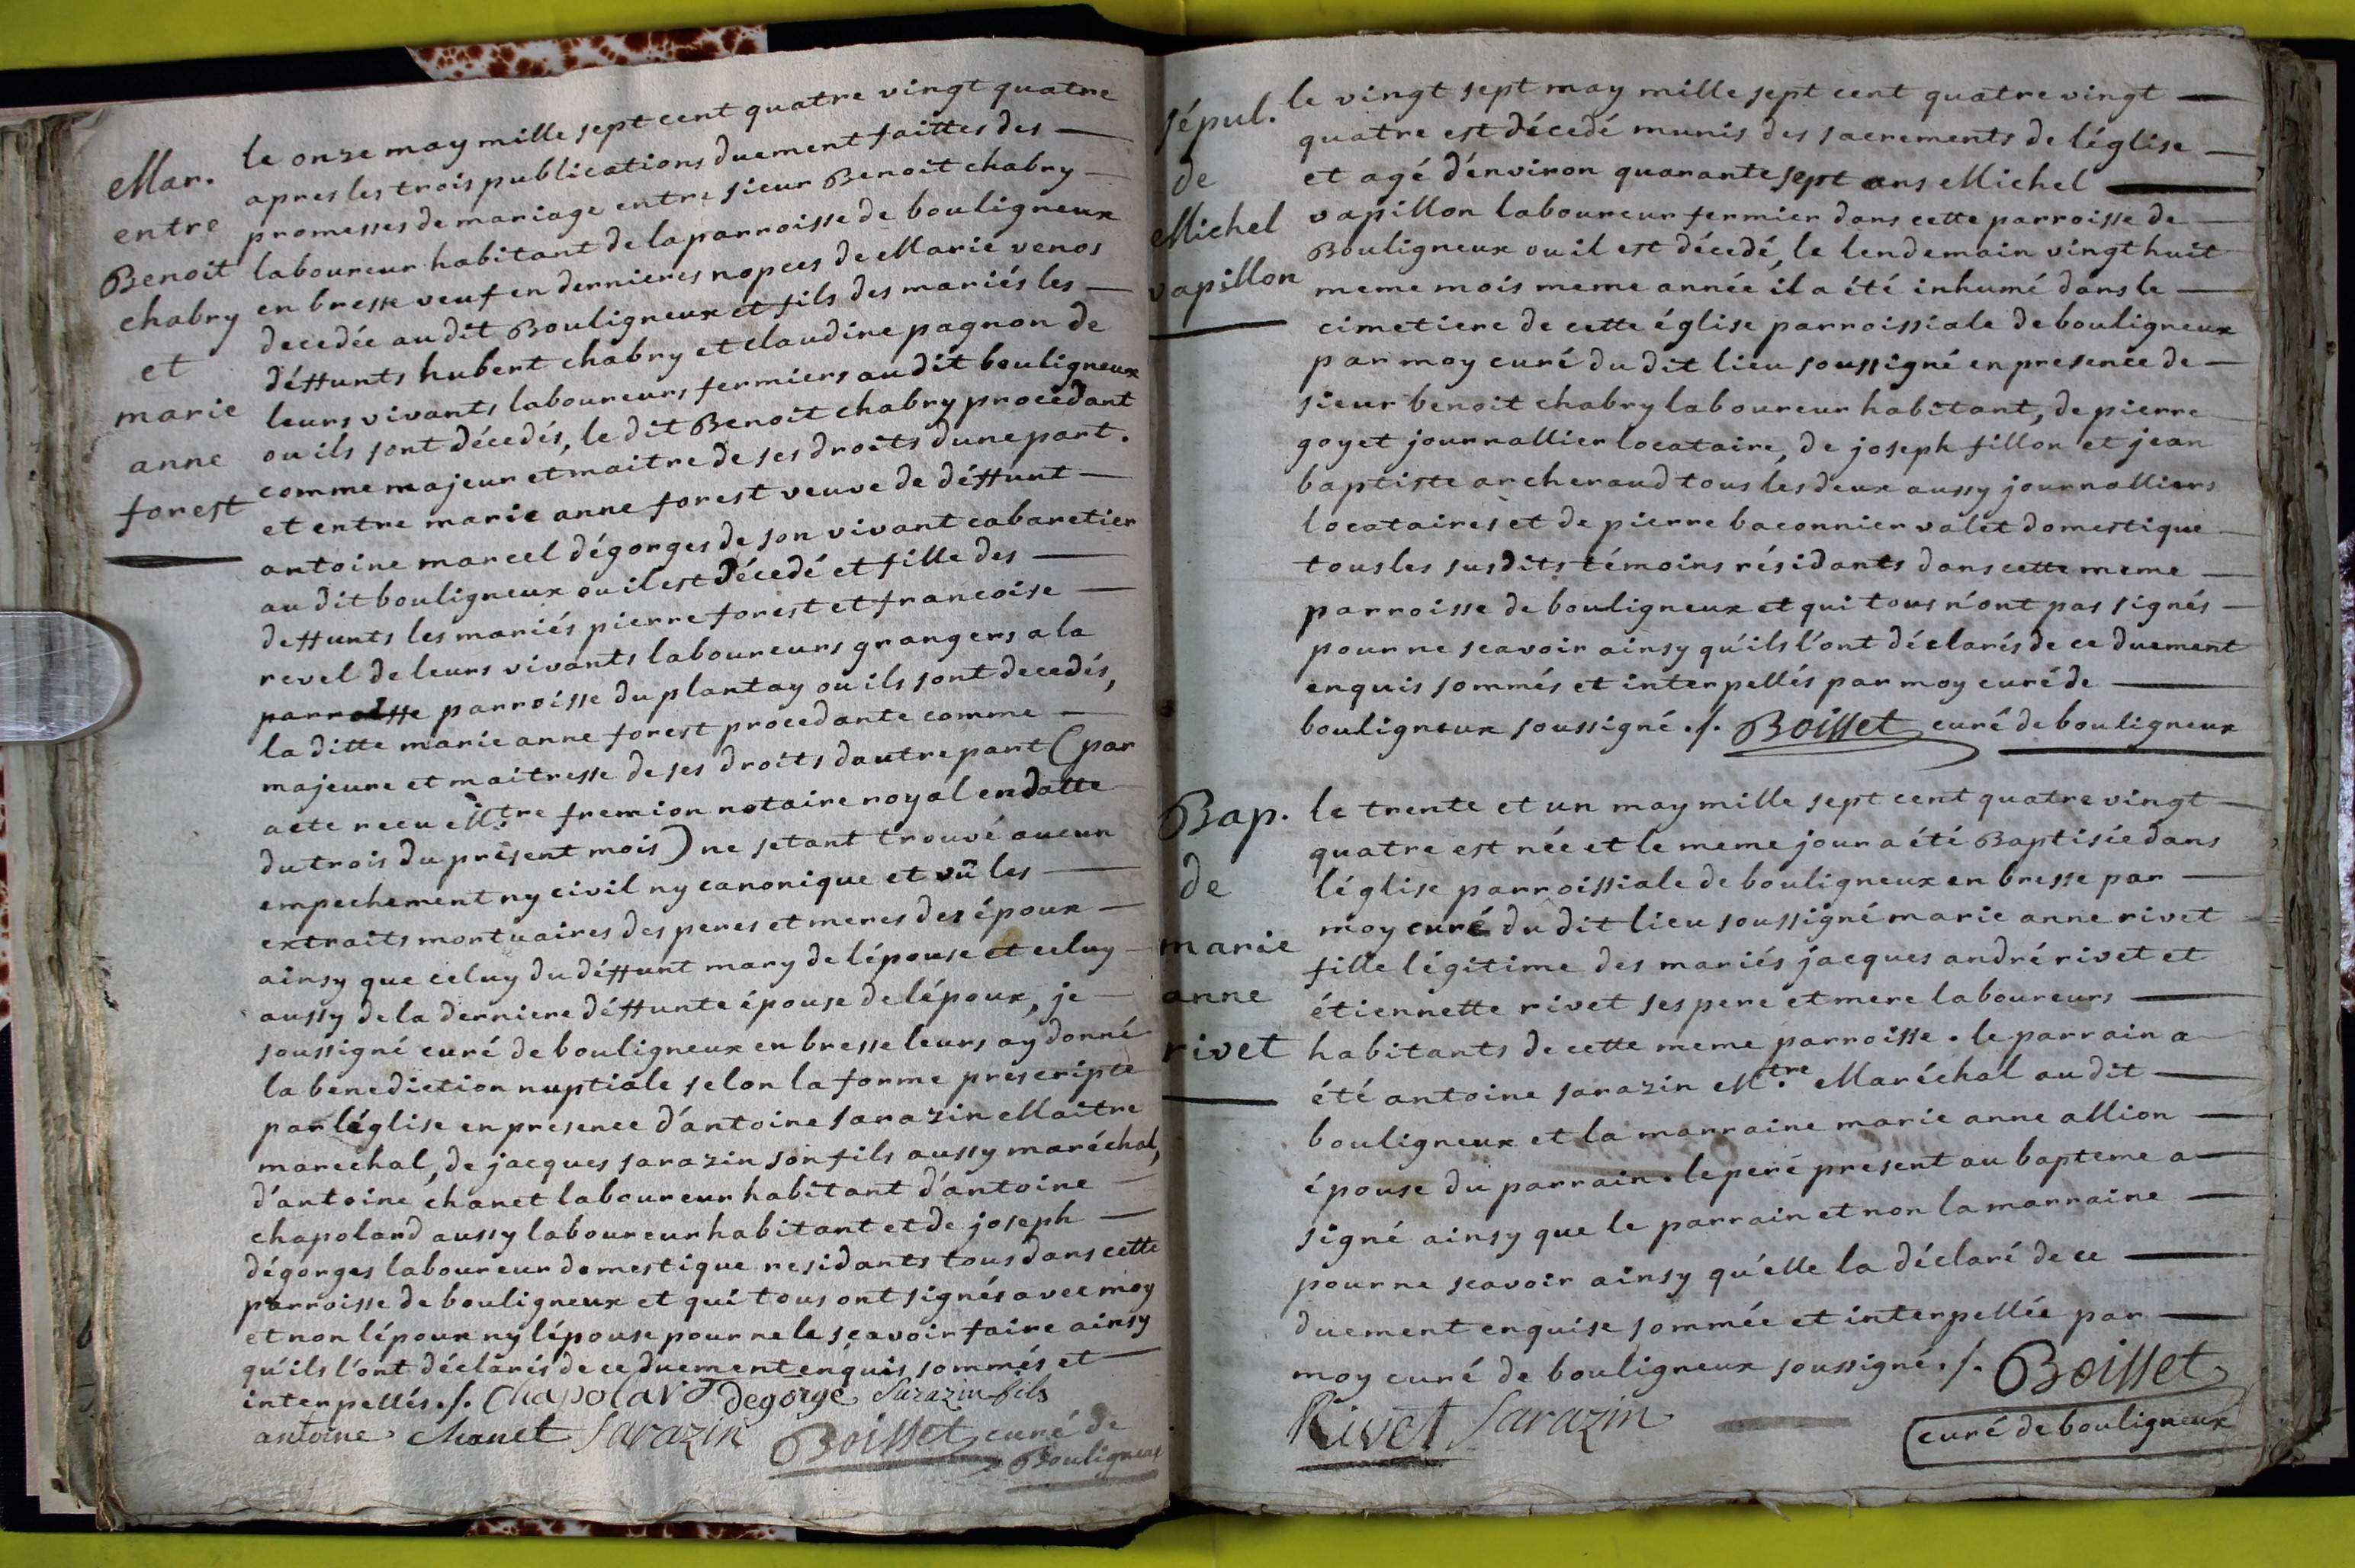 Mar.
entre
Benoit
chabry
et
marie
anne
forest
le onze may mille sept cent quatre vingt quatre
apres les trois publications duement faittes des
promesses de mariage entre sieur Benoit chabry
laboureur habitant de la parroisse de bouligneux
en bresse veuf en dernieres nopces de Marie venos
decedée au dit Bouligneux et fils des mariés les
déffunts hubert chabry et claudine pagnon de
leurs vivants laboureurs fermiers au dit bouligneux
ou ils sont décedés, le dit Benoit chabry procédant
comme majeur et maitre de ses droits dune part.
et entre marie anne forest veuve de déffunt
antoine marcel dégorges de son vivant cabaretier
au dit bouligneux ou il est décedé et fille des
deffunts les mariés pierre forest et francoise
revel de leurs vivants laboureurs grangers a la
parroisse parroisse du plantay ou ils sont decedés,
la ditte marie anne forest procedante comme
majeure et maitresse de ses droits dautre part (par
acte recu M.tre fremion notaire royal en datte
du trois du présent mois) ne setant trouvé aucun
empechement ny civil ny canonique et vû les
extraits mortuaires des peres et meres des époux
ainsy que celuy du déffunt mary de lépouse et celuy
aussy de la derniere déffunte épouse de lépoux, je
soussigné curé de bouligneux en bresse leurs ay donné
la benediction nuptiale selon la forme prescripte
par léglise en presence d'antoine sarazin Maitre
marechal, de jacques sarazin son fils aussy maréchal,
d'antoine chanet laboureur habitant d'antoine
chapolard aussy laboureur habitant et de joseph
dégorges laboureur domestique residants tous dans cette
parroisse de bouligneux et qui tous ont signés avec moy
et non lépoux ny lépouse pour ne le scavoir faire ainsy
qu'ils l'ont déclarés de ce duement enquis sommés et
interpellés./. Chapolard Degorge Sarazin fils
antoine Chanet Sarazin Boisset curé de
Bouligneux
sépul.
de
Michel
vapillon
le vingt sept may mille sept cent quatre vingt
quatre est décedé munis des sacrements de léglise
et agé d'énviron quarante sept ans Michel
vapillon laboureur fermier dans cette parroisse de
Bouligneux ou il est décedé, le lendemain vingt huit
meme mois meme année il a été inhumé dans le
cimetiere de cette église parroissiale de bouligneux
par moy curé du dit lieu soussigné en presence de
sieur benoit chabry laboureur habitant, de pierre
goyet journallier locataire, de joseph fillon et jean
baptiste archeraud tous les deux aussy journalliers
locataires et de pierre baconnier valet domestique
tous les susdits témoins résidants dans cette meme
parroisse de bouligneux et qui tous n'ont pas signés
pour ne scavoir ainsy qu'ils l'ont déclarés de ce duement
enquis sommés et interpellés par moy curé de
bouligneux soussigné./. Boisset curé de bouligneux
Bap.
de
marie
anne
rivet
le trente et un may mille sept cent quatre vingt
quatre est née et le meme jour a été Baptisée dans
léglise parroissiale de bouligneux en bresse par
moy curé du dit lieu soussigné marie anne rivet
fille légitime des mariés jacques andré rivet et
étiennette rivet ses pere et mere laboureurs
habitants de cette meme parroisse. le parrain a
été antoine sarazin M.tre Maréchal au dit
bouligneux et la marraine marie anne allion
épouse du parrain. le peré present au bapteme a
signé ainsy que le parrain et non la marraine
pour ne scavoir ainsy qu'elle la déclaré de ce
duement enquise sommée et interpellée par
moy curé de bouligneux soussigné./. Boisset
Rivet Sarazin curé de bouligneux